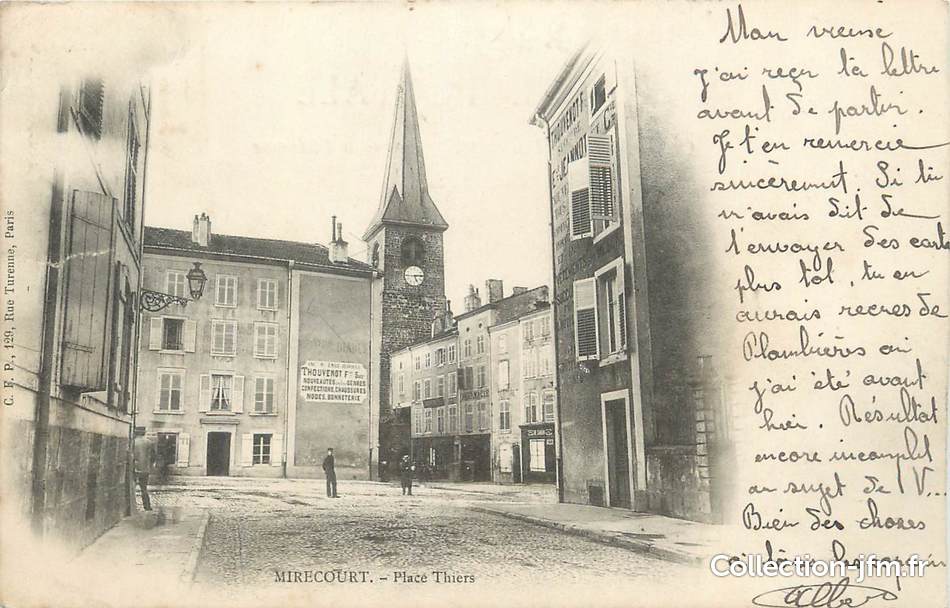 C. F. P., 129, Rue Turenne, Paris
THOUVENOT F
JEANNOT
THOUVENOT Fˢ Sᵘʳ
NOUVEAUTÉS EN TOUS GENRES
CONFECTIONS, CHAUSSURES
MODES, BONNETERIE
PHARMACIE
MIRECOURT. - Place Thiers
Mon vieux
J'ai reçu ta lettre
avant de partir.
Je t'en remercie
sincèrement. Si tu
m'avais dit de
t'envoyer des cartes
plus tot, tu en
aurais reçues de
Plombières où
j'ai été avant
hier. Résultat
encore incomplet
au sujet de V...
Bien des choses
Albert
Collection-jfm.fr